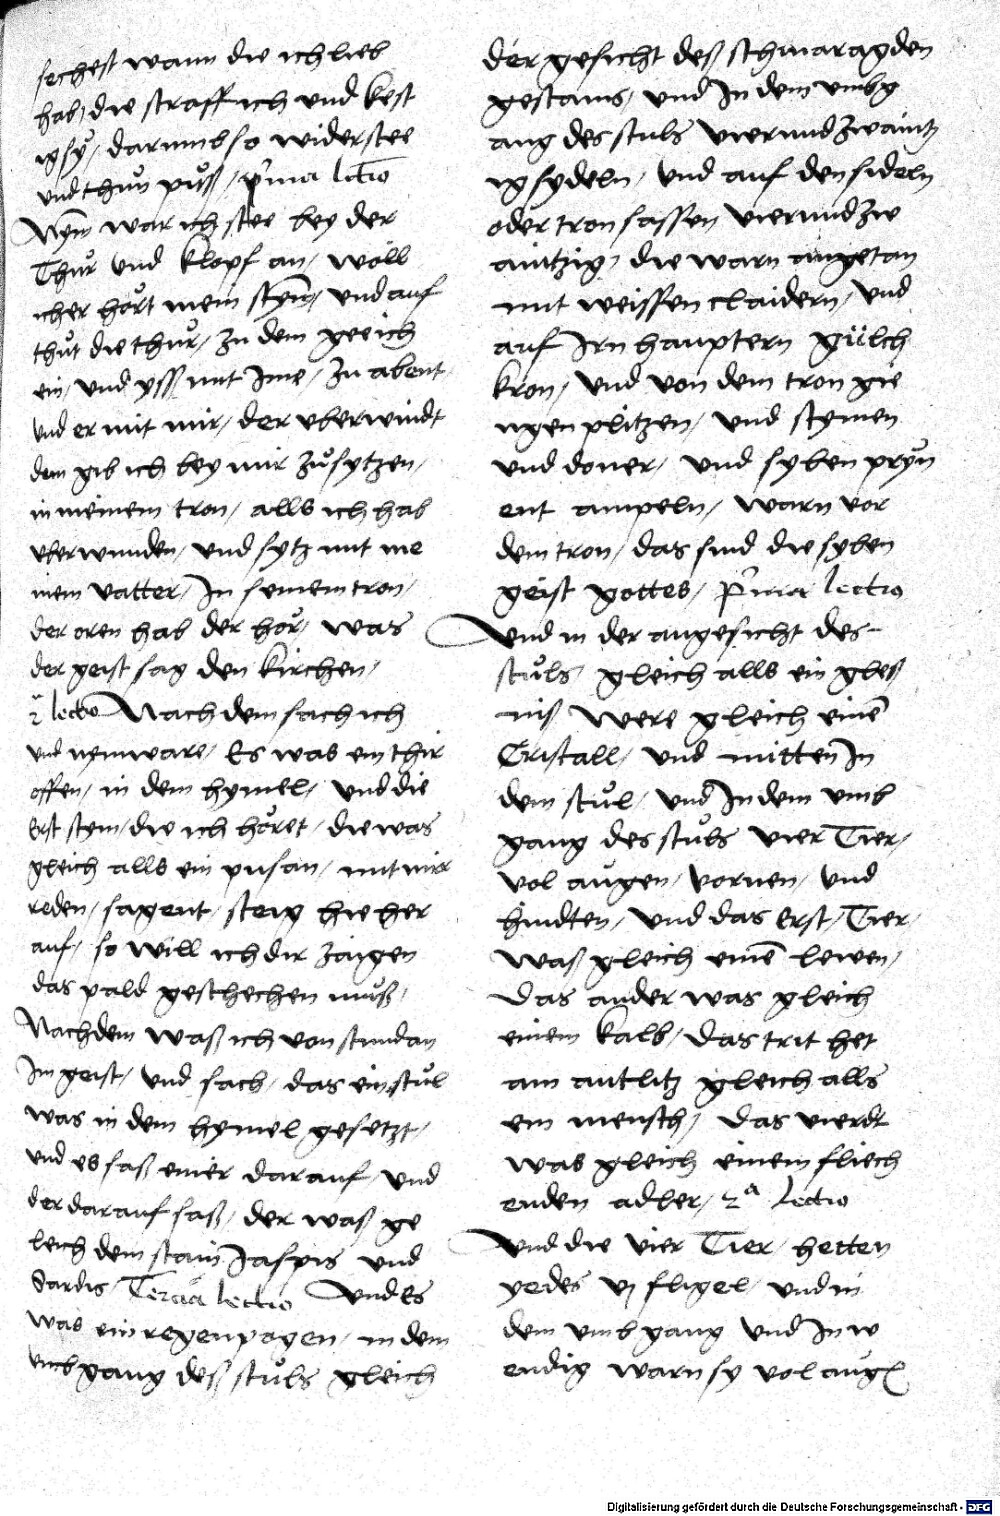 sechest wann die ich lieb
hab, die straff ich und kest
ig sy, darumb so widerstee
und thuͦn puͦß, pͥma lectio
Nym̄ war ich stee bey der
Thuͤr und klopf an, woͤll
icher hoͤrt mein stym̄, und auf
thuͦt die thuͤr, zu dem gee ich
ein, und yss mit Ime, zu abent
und er mit mir, der uberwindt
dem gib ich bey mir zuͦ sytzen,
in meinem tron, alls ich hab
uberwunden, und sytz mit me
inem vatter, In seinem tron,
der oren hab der hoͤr, was
der geist sag den kirchen,
2ª lectio Nach dem sach ich
und nemware, Es was ein thuͤr
offen, in dem hymel, und die
Erst stym, die ich hoͤret, die was
gleich alls ein pusan, mit mir
reden, sagent, steig hie her
auf, so will ich dir zaigen
das pald geschechen muͦß,
Nachdem waß ich von stundan
Im geist, und sach, das ein stuͦl
was in dem hymel gesetzt,
und es saß einer darauf, und
der darauf saß, der waß ge
leich dem stain Jaspis und
Sardis, Tercia lectio Und es
was ein regenpogen, in dem
umbgang deß stuͦls gleich
der gesicht deß schmaragden
gestains, und In dem umbg
ang des stuls vierundzwaintz
ig sydeln, und auf den sideln
oder tron sassen vierundzw
aintzig, die warn angetan
mit weissen claidern, und
auf Irn hauptern gulch
kron, und von dem tron gie
ngen plitzen, und stymen
und doner, und syben pryn
ent ampeln, warn vor
dem tron, das sind die syben
geist gottes, pͥma lectio
Und in der angesicht des
stuͦls gleich alls ein gleß
niß were gleich einē
Cristall, und mitten In
dem stuͦl, und In dem umb
gang des stuͦls vier Tier,
vol augen, vornen, und
hindten, und das Erst, Tier,
waß gleich einē lewen,
Das ander was gleich
einem kalb, das trit het
am antlitz gleich alls
ein mensch, das vierdt
was gleich einem fliech
enden adler, 2ª lectio
Und die vier Tier, hetten
yedes vj fligel, und in
dem umbgang und Inw
endig warn sy vol aug
Digitalisierung gefördert durch die Deutsche Forschungsgemeinschaft - DFG